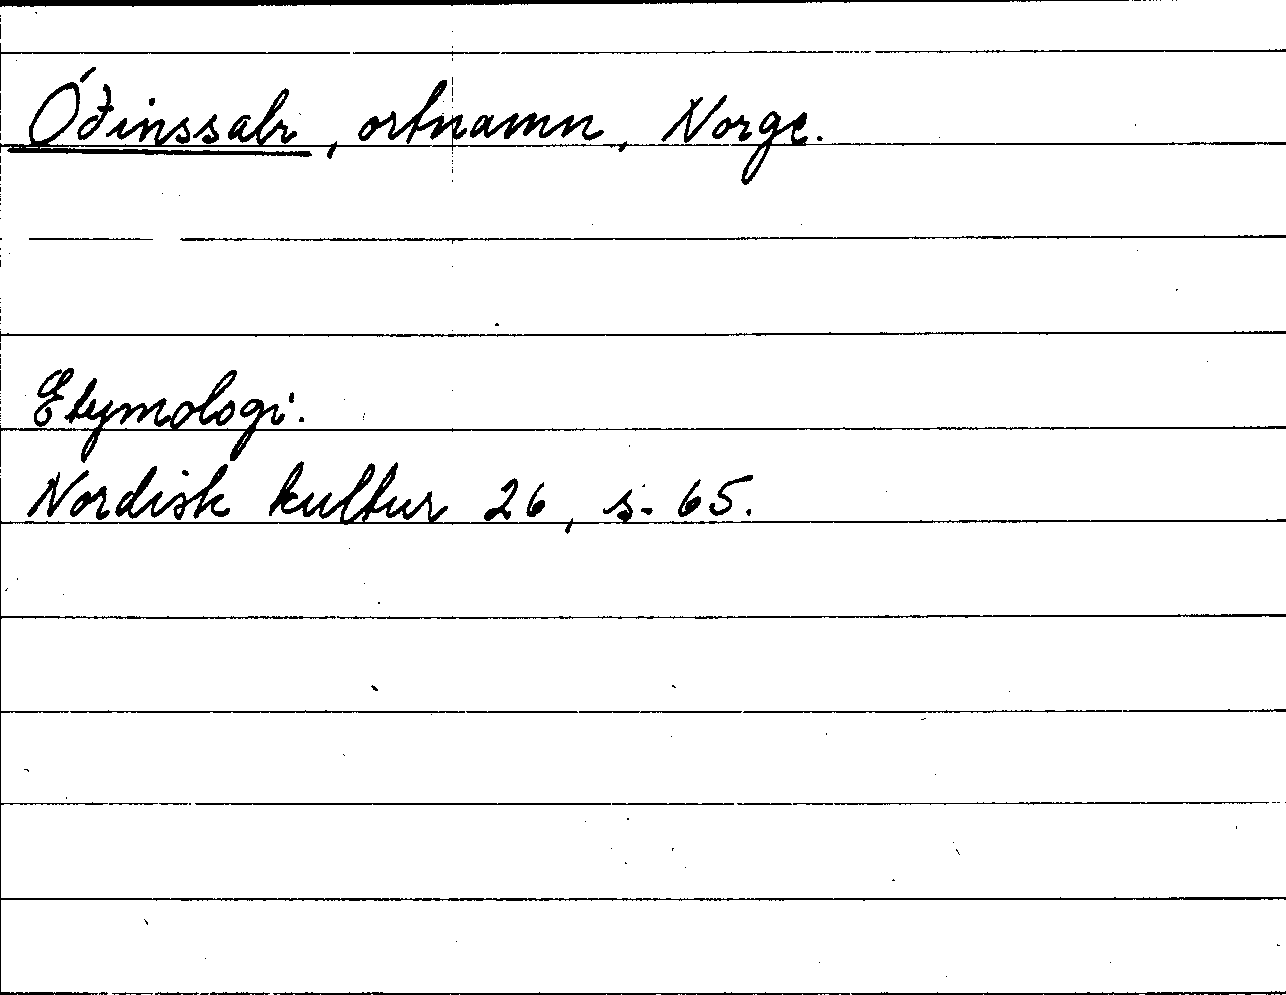 Óðinssalr, ortnamn, Norge.
Etymologi.
Nordisk kultur 26, s. 65.